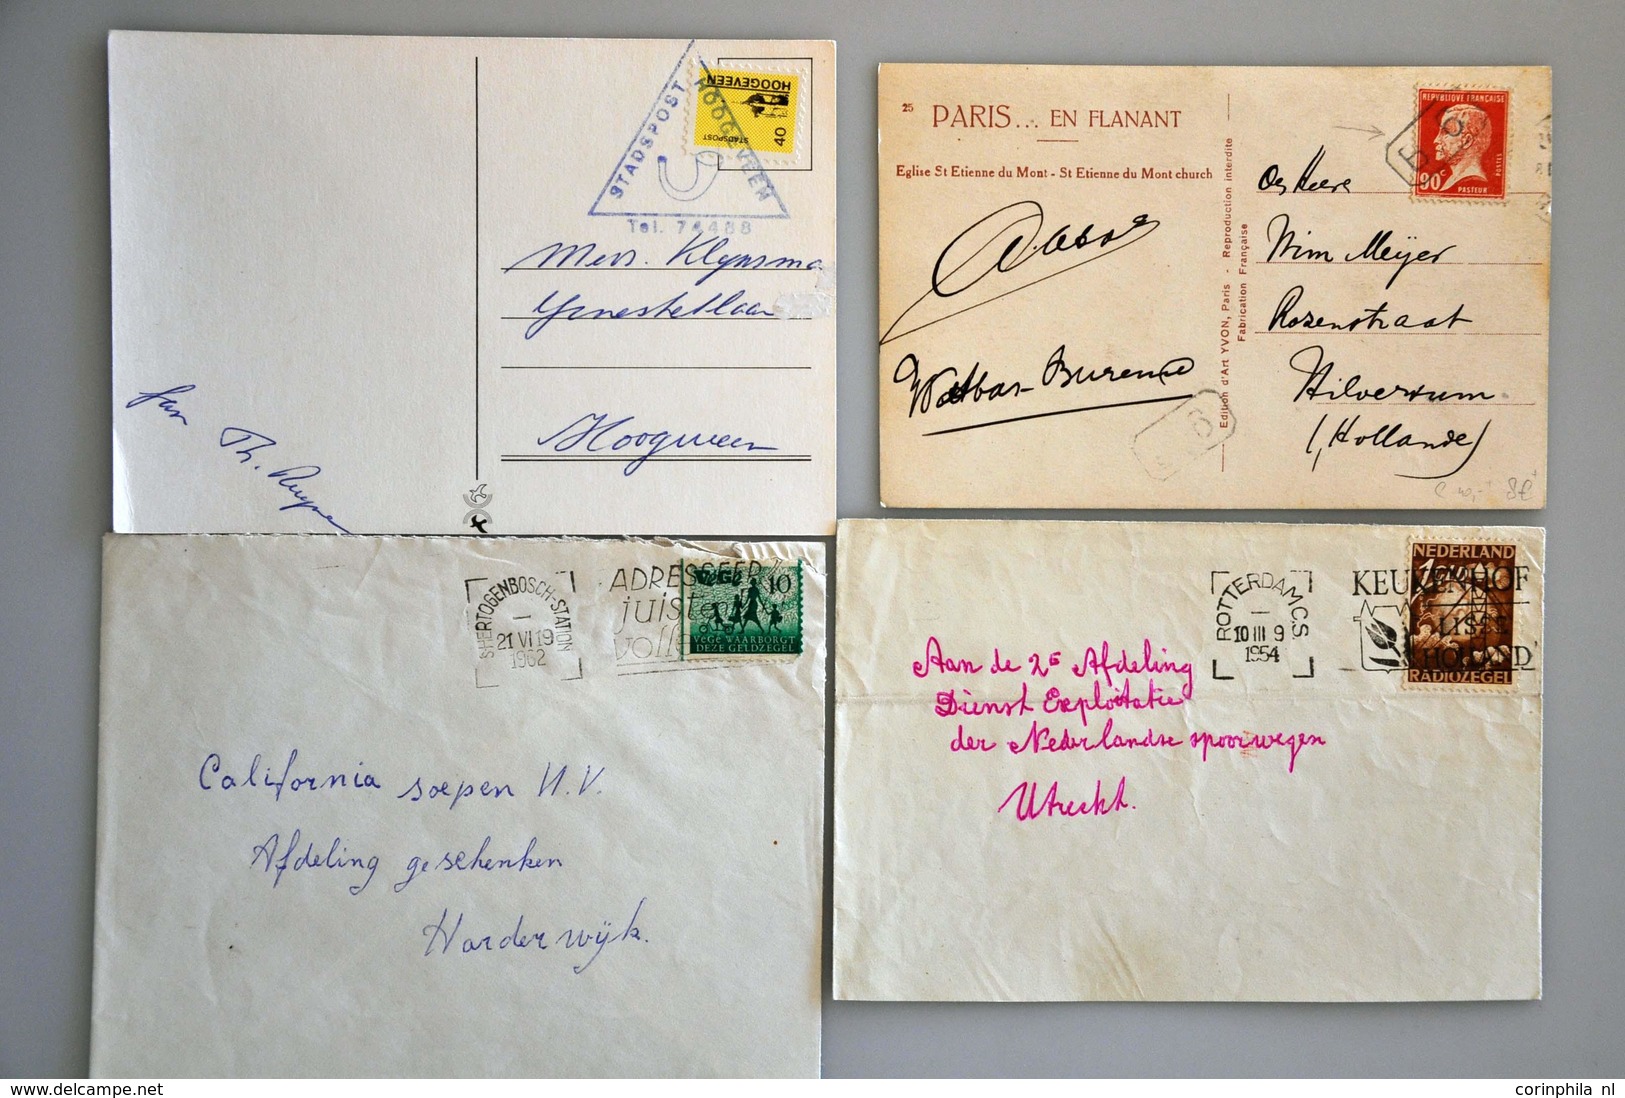 STADSPOST
HOOGEVEEN
Tel. 74488
HOOGEVEEN
STADSPOST
40
Mevr. Klynsma
Genestetlaan
Hoogeveen
fam
Th.
25 PARIS... EN FLANANT
Eglise St Etienne du Mont - St Etienne du Mont church
Edition d'Art YVON, Paris - Reproduction interdite
Fabrication Française
REPUBLIQUE FRANÇAISE
90c
POSTES
PASTEUR
Heere
Wim Meijer
Rozenstraat
Hilversum
(Hollande)
SHERTOGENBOSCH-STATION
21 VI 19
1962
ADRESSEER
juist
volle
VéGé 10
VéGé WAARBORGT
DEZE GELDZEGEL
California soepen N.V.
Afdeling geschenken
Harderwijk.
ROTTERDAM CS
10 III 9
1954
KEUKENHOF
LISSE
HOLLAND
NEDERLAND
RADIOZEGEL
Aan de 2e Afdeling
Dienst Exploitatie
der Nederlandse spoorwegen
Utrecht.
corinphila nl